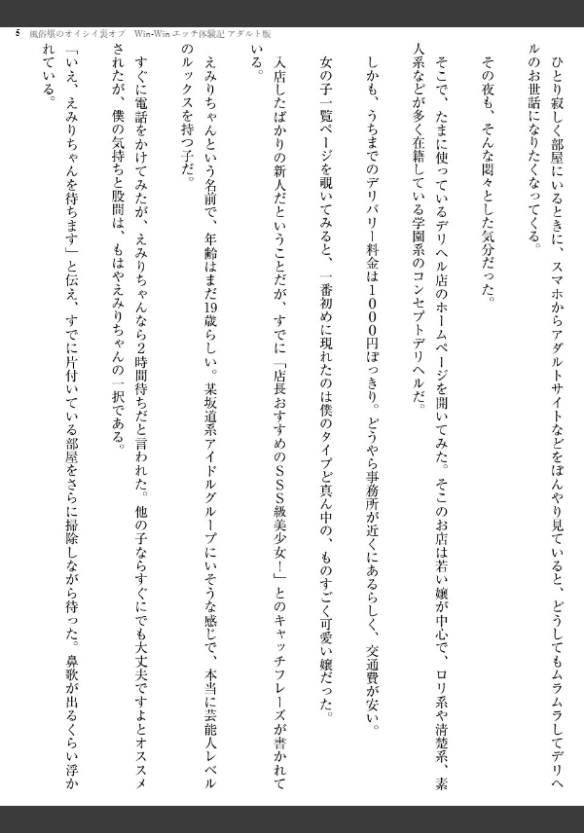 5 風俗嬢のオイシイ裏オプ Win-Winエッチ体験記 アダルト版
ひとり寂しく部屋にいるときに、スマホからアダルトサイトなどをぼんやり見ていると、どうしてもムラムラしてデリヘ
ルのお世話になりたくなってくる。
その夜も、そんな悶々とした気分だった。
そこで、たまに使っているデリヘル店のホームページを開いてみた。そこのお店は若い嬢が中心で、ロリ系や清楚系、素
人系などが多く在籍している学園系のコンセプトデリヘルだ。
しかも、うちまでのデリバリー料金は1000円ぽっきり。どうやら事務所が近くにあるらしく、交通費が安い。
女の子一覧ページを覗いてみると、一番初めに現れたのは僕のタイプど真ん中の、ものすごく可愛い嬢だった。
入店したばかりの新人だということだが、すでに「店長おすすめのSSS級美少女!」とのキャッチフレーズが書かれて
いる。
えみりちゃんという名前で、年齢はまだ19歳らしい。某坂道系アイドルグループにいそうな感じで、本当に芸能人レベル
のルックスを持つ子だ。
すぐに電話をかけてみたが、えみりちゃんなら2時間待ちだと言われた。他の子ならすぐにでも大丈夫ですよとオススメ
されたが、僕の気持ちと股間は、もはやえみりちゃんの一択である。
「いえ、えみりちゃんを待ちます」と伝え、すでに片付いている部屋をさらに掃除しながら待った。鼻歌が出るくらい浮か
れている。